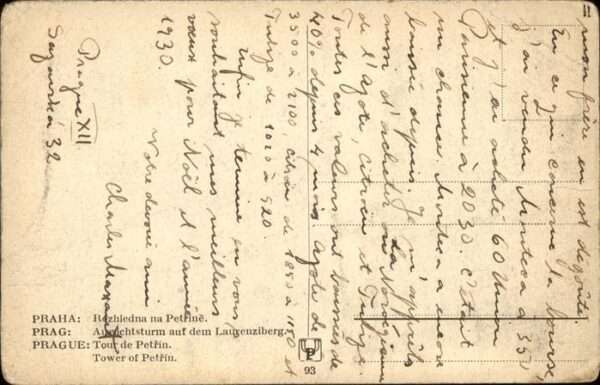 = mon frère en est dégoûté.
En ce qui concerne la bourse,
j'ai vendu Montesa à 350
et j'ai acheté 60 Union
Parisienne à 2030. C'était
un chance. Montesa a encore
baissé depuis. Je m'apprête
aussi d'acheter de la Norvégienne
de l'Azote, Citroën et Tubize.
Toutes ces valeurs ont baissés de
40% depuis 4 mois Azote de
3500 à 2100, citroën de 1850 à 1150 et
Tubize de 1020 à 520.
Enfin je termine en vous
souhaitant mes meilleurs
vœux pour Noël et l'année
1930.
Votre dévoué ami
Charles
Prague XII
Sázavská 32
PRAHA: Rozhledna na Petříně.
PRAG: Aussichtsturm auf dem Laurenziberg.
PRAGUE: Tour de Petřín.
Tower of Petřín.
P
93